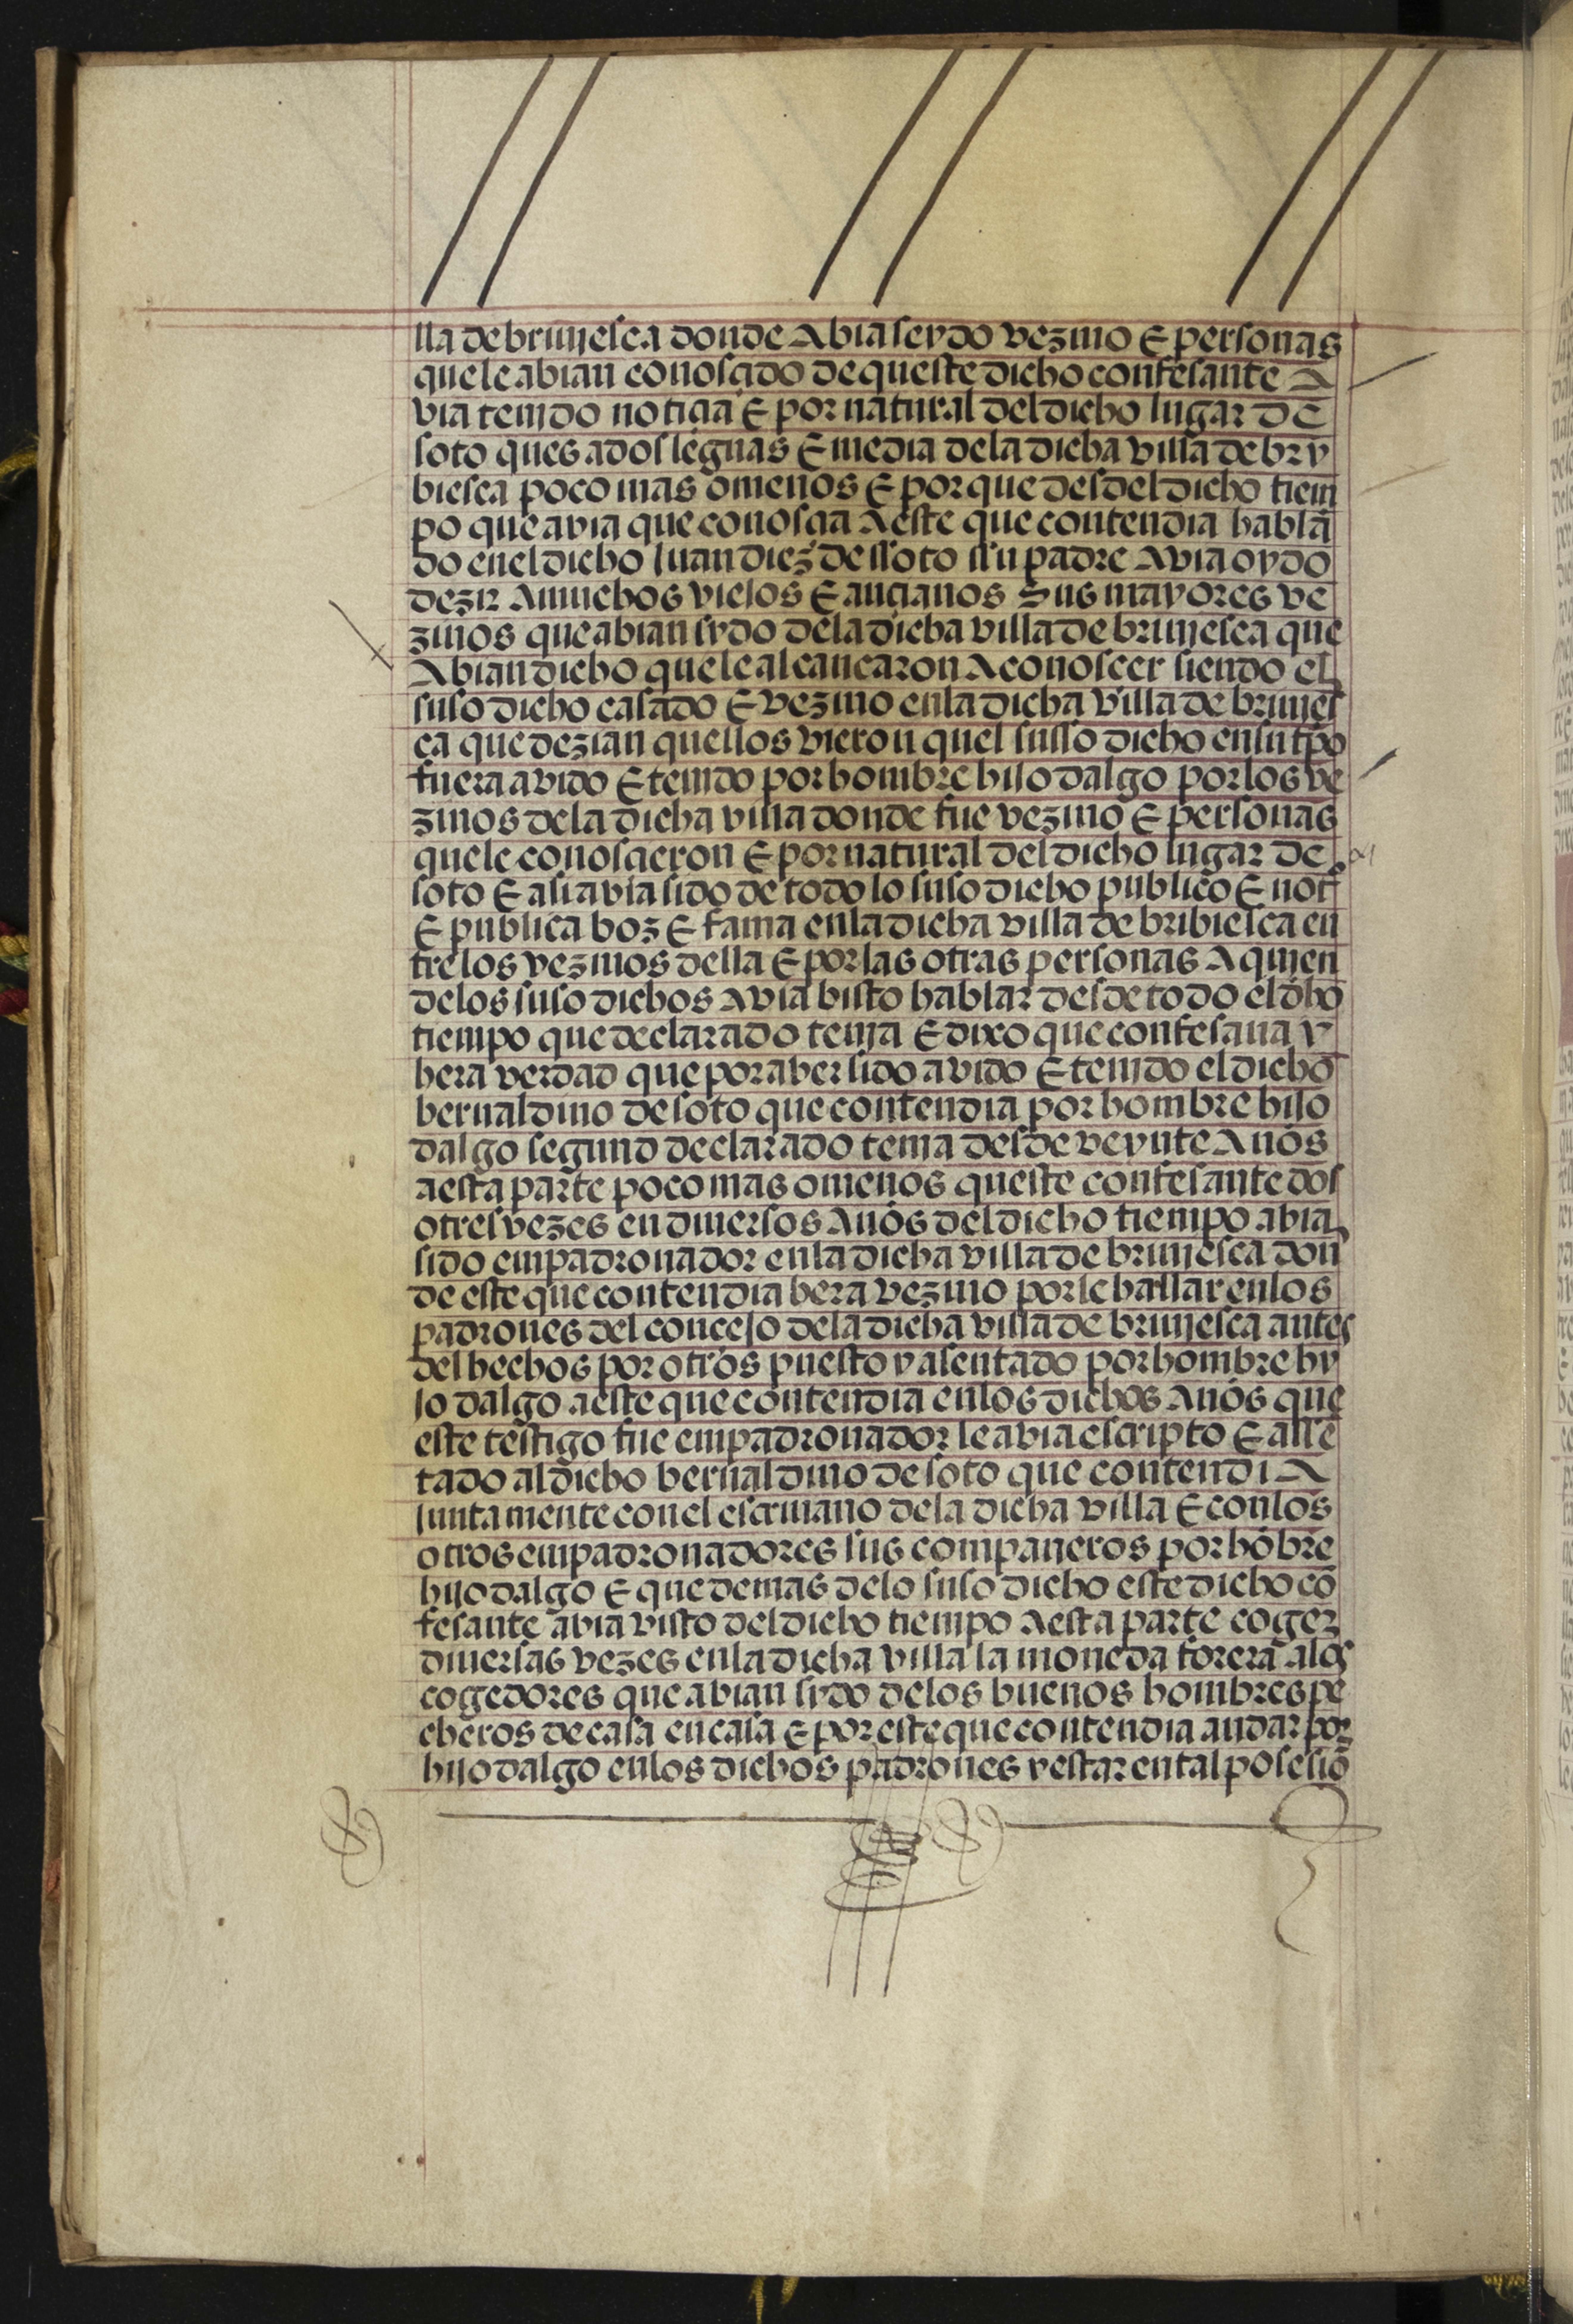 lla de briuiesca donde Abia seydo vezino E personas
que le abian conosçido de queste dicho confesante A
via tenido notiçia E por natural del dicho lugar de
soto ques a dos leguas E media de la dicha villa de bry
biesca poco mas o menos E por que desdel dicho tiem
po que avia que conosçia A este que contendia hablā
do en el dicho Juan diez de ssoto ssu padre Avia oydo
dezir A muchos viejos E ançianos Sus mayores ve
zinos que abian sydo de la dicha villa de briuiesca que
Abian dicho que le alcançaron A conoscer siendo el
suso dicho casado E vezino en la dicha villa de briuies
ca que dezian quellos vieron quel susso dicho en su tpo
fuera avido E tenido por hombre hijo dalgo por los ve
zinos de la dicha villa donde fue vezino E personas
que le conosçieron E por natural del dicho lugar de
soto E asi avia sido de todo lo suso dicho publico E not°
E publica boz E fama en la dicha villa de bribiesca en
tre los vezinos della E por las otras personas A quien
de los suso dichos Avia bisto hablar desde todo el dho
tiempo que declarado tenia E dixo que confesaua y
hera verdad que por aber sido avido E tenido el dicho
bernaldino de soto que contendia por hombre hijo
dalgo segund declarado tenia desde veynte Años
a esta parte poco mas o menos queste confesante dos
o tres vezes en diuersos Años del dicho tiempo abia
sido empadronador en la dicha villa de briuiesca don
de este que contendia hera vezino por le hallar en los
padrones del concejo de la dicha villa de briuiesca antes
del hechos por otros puesto y asentado por hombre hy
jo dalgo a este que contendia en los dichos Años que
este testigo fue empadronador le avia escripto E assē
tado al dicho bernaldino de soto que contendiA
juntamente con el escriuano de la dicha villa E con los
otros empadronadores sus companeros por hōbre
hijo dalgo E que demas de lo suso dicho este dicho cō
fesante abia visto del dicho tiempo A esta parte coger
diuersas vezes en la dicha villa la moneda forera a los
cogedores que abian sydo de los buenos hombres pe
cheros de casa en casa E por este que contendia andar por
hijo dalgo en los dichos padrones y estar en tal posesiō